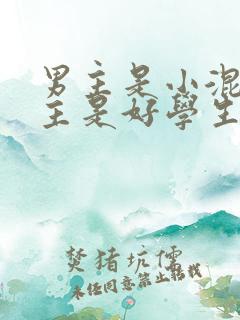 男主是小混
主是好學生
焚猪坑儒
未经同意禁止转载